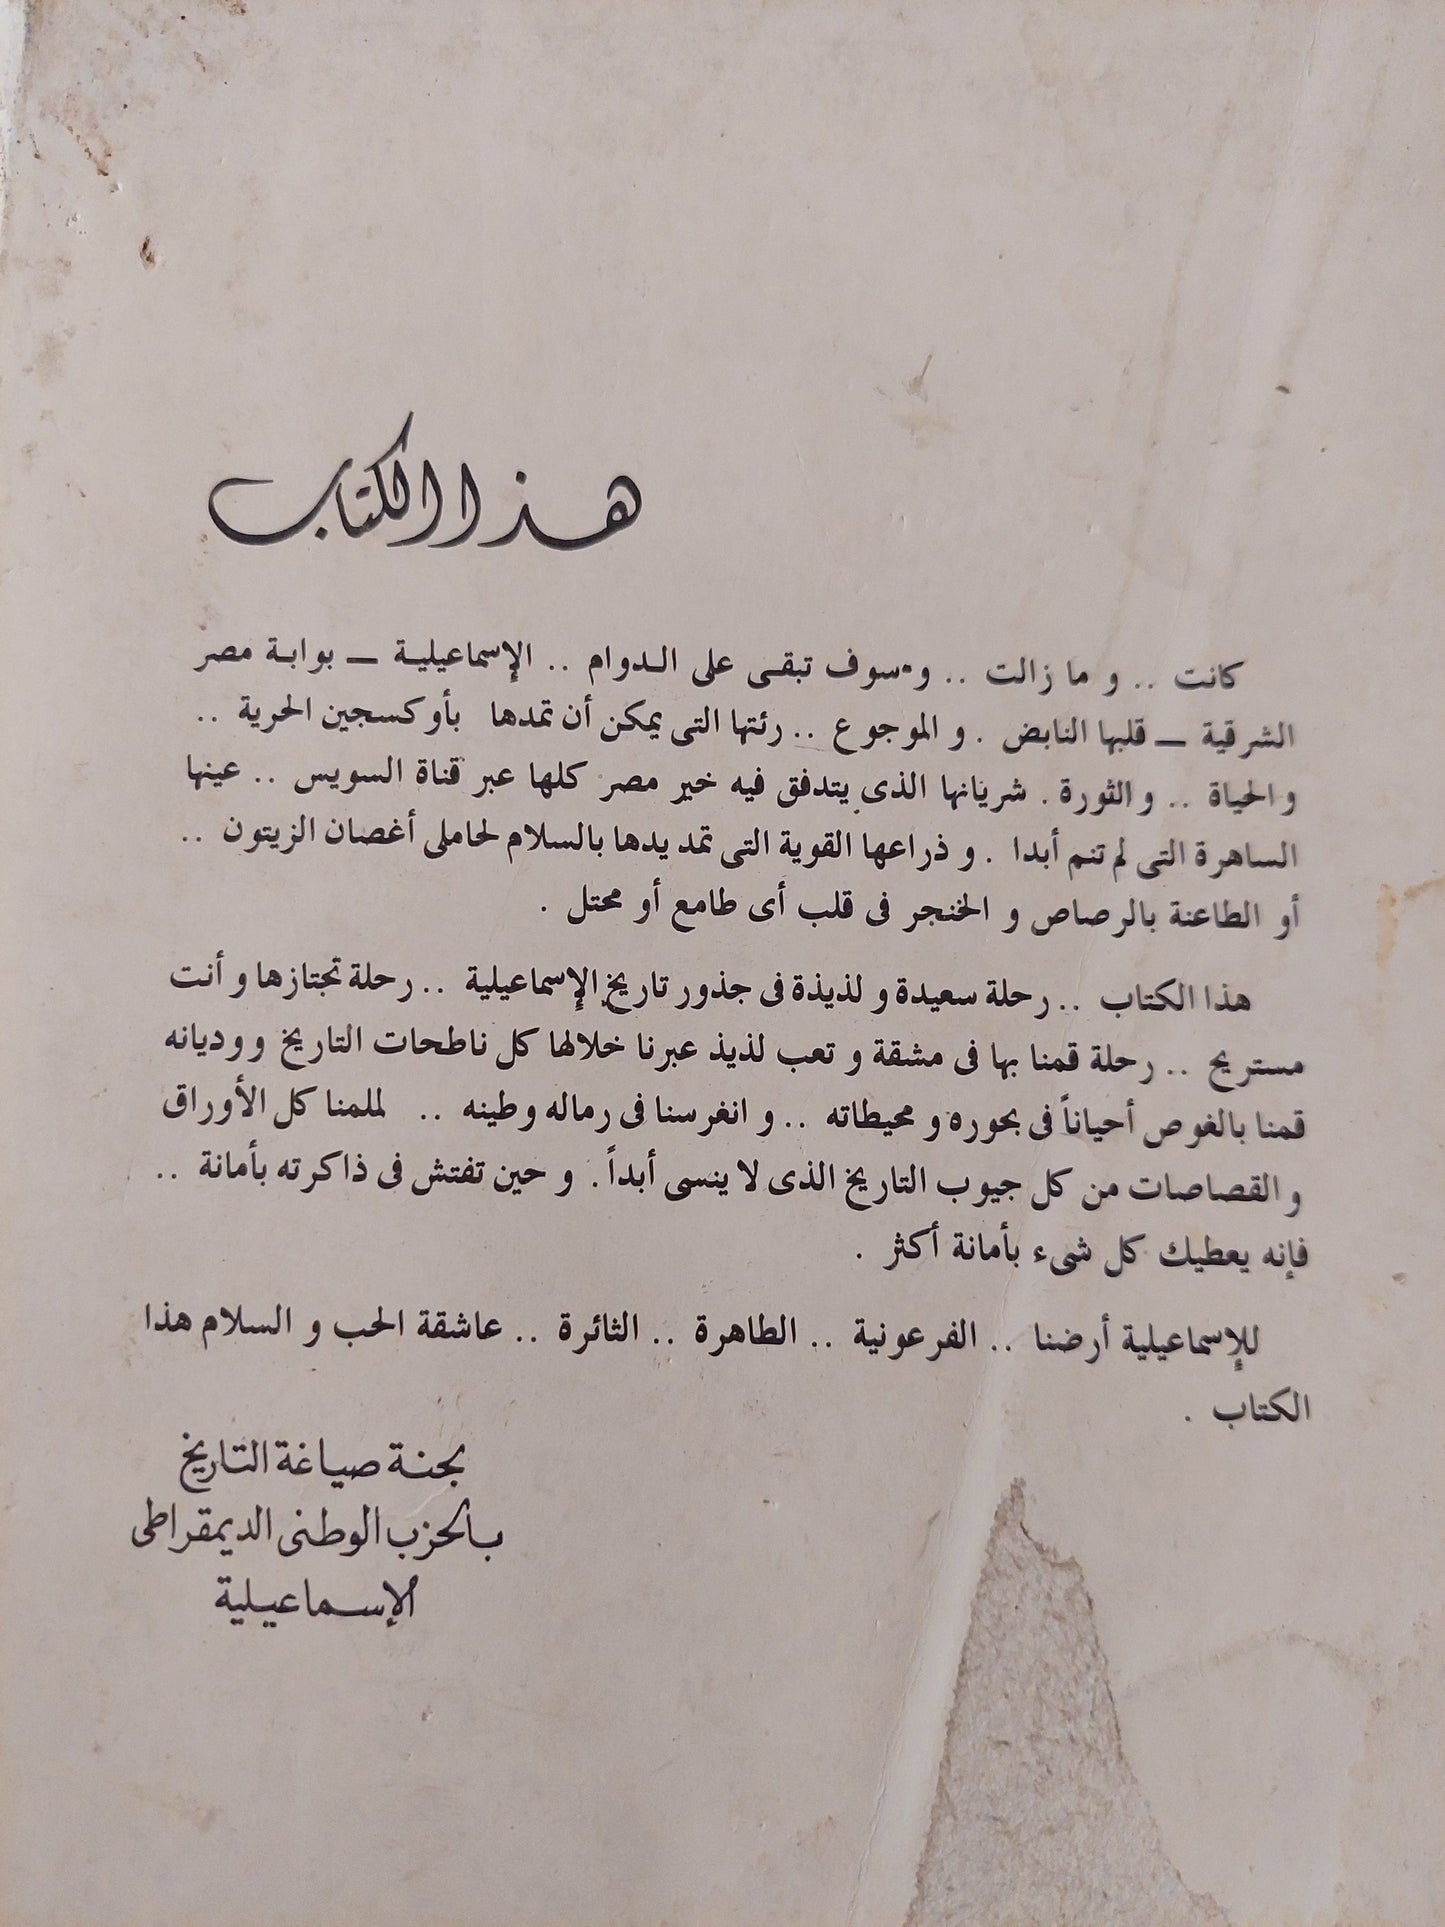 هذا الكتاب
كانت .. و ما زالت .. و سوف تبقى على الدوام .. الإسماعيلية — بوابة مصر
الشرقية — قلبها النابض . و الموجوع .. رئتها التى يمكن أن تمدها بأوكسجين الحرية ..
و الحياة .. و الثورة . شريانها الذى يتدفق فيه خير مصر كلها عبر قناة السويس .. عينها
الساهرة التى لم تنم أبدا . و ذراعها القوية التى تمد يدها بالسلام لحاملى أغصان الزيتون ..
أو الطاعنة بالرصاص و الخنجر فى قلب أى طامع أو محتل .
هذا الكتاب .. رحلة سعيدة و لذيذة فى جذور تاريخ الإسماعيلية .. رحلة تجتازها و أنت
مستريح .. رحلة قمنا بها فى مشقة و تعب لذيذ عبرنا خلالها كل ناطحات التاريخ و وديانه
قمنا بالغوص أحياناً فى بحوره و محيطاته .. و انغرسنا فى رماله و طينه .. لملمنا كل الأوراق
و القصاصات من كل جيوب التاريخ الذى لا ينسى أبداً . و حين تفتش فى ذاكرته بأمانة ..
فإنه يعطيك كل شىء بأمانة أكثر .
للإسماعيلية أرضنا .. الفرعونية .. الطاهرة .. الثائرة .. عاشقة الحب و السلام هذا
الكتاب .
لجنة صياغة التاريخ
بالحزب الوطنى الديمقراطى
الإسماعيلية